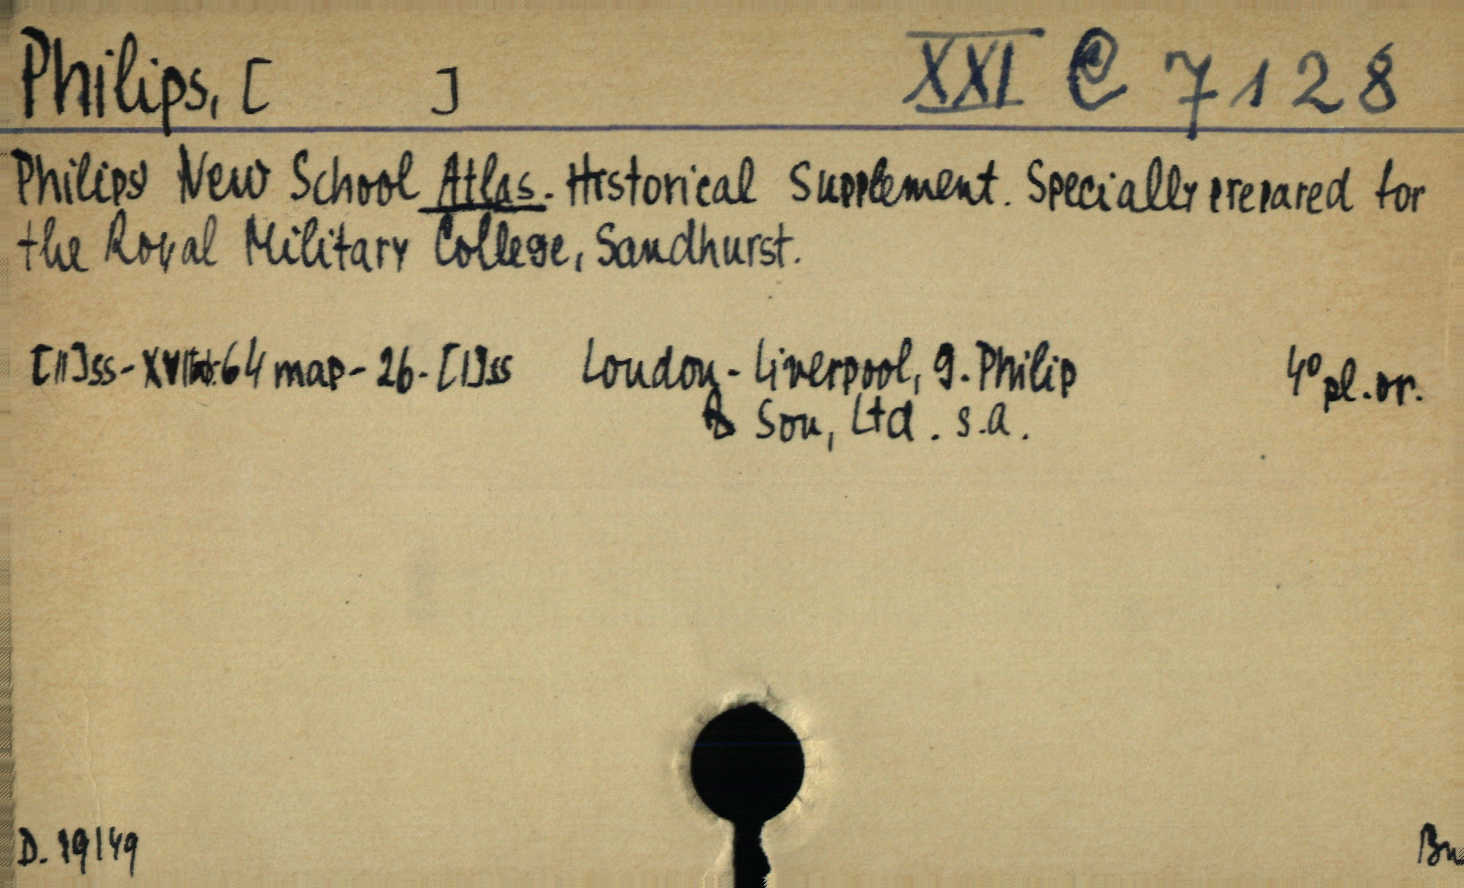 Philips, [ ] XXI C 7128
Philips' New School Atlas. Historical Supplement. Specially prepared for
the Royal Military College, Sandhurst.
[II]ss-XVI 64 map-26-[I]ss London-Liverpool, G. Philip 4° pl. or.
& Son, Ltd. s.a.
D. 19/49 Bu